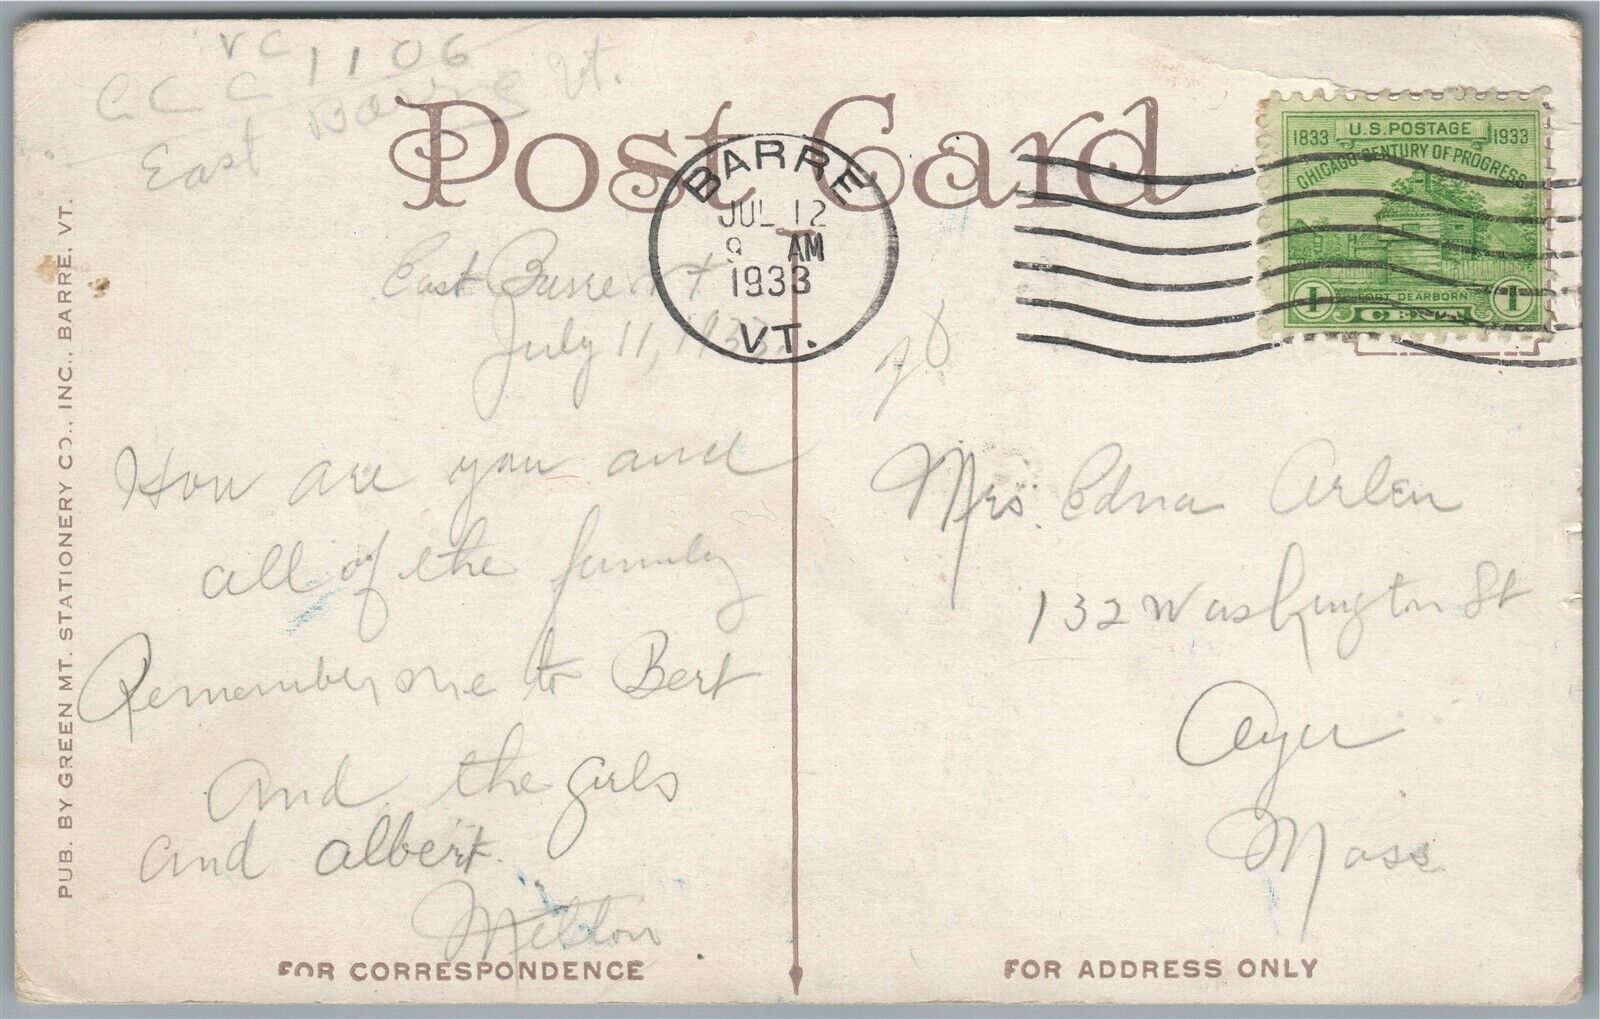 VC 1106
CCC
East Barre Vt.
Post Card
BARRE
JUL 12
9 AM
1933
VT.
1833 U.S. POSTAGE 1933
CHICAGO CENTURY OF PROGRESS
FORT DEARBORN
1 CENT 1
PUB. BY GREEN MT. STATIONERY CO., INC., BARRE, VT.
East Barre Vt
July 11, 1933
How are you and
all of the family
Remember me to Bert
and the girls
and albert.
Milton
Mrs. Edna Arlen
132 Washington St
Ayer
Mass
FOR CORRESPONDENCE
FOR ADDRESS ONLY